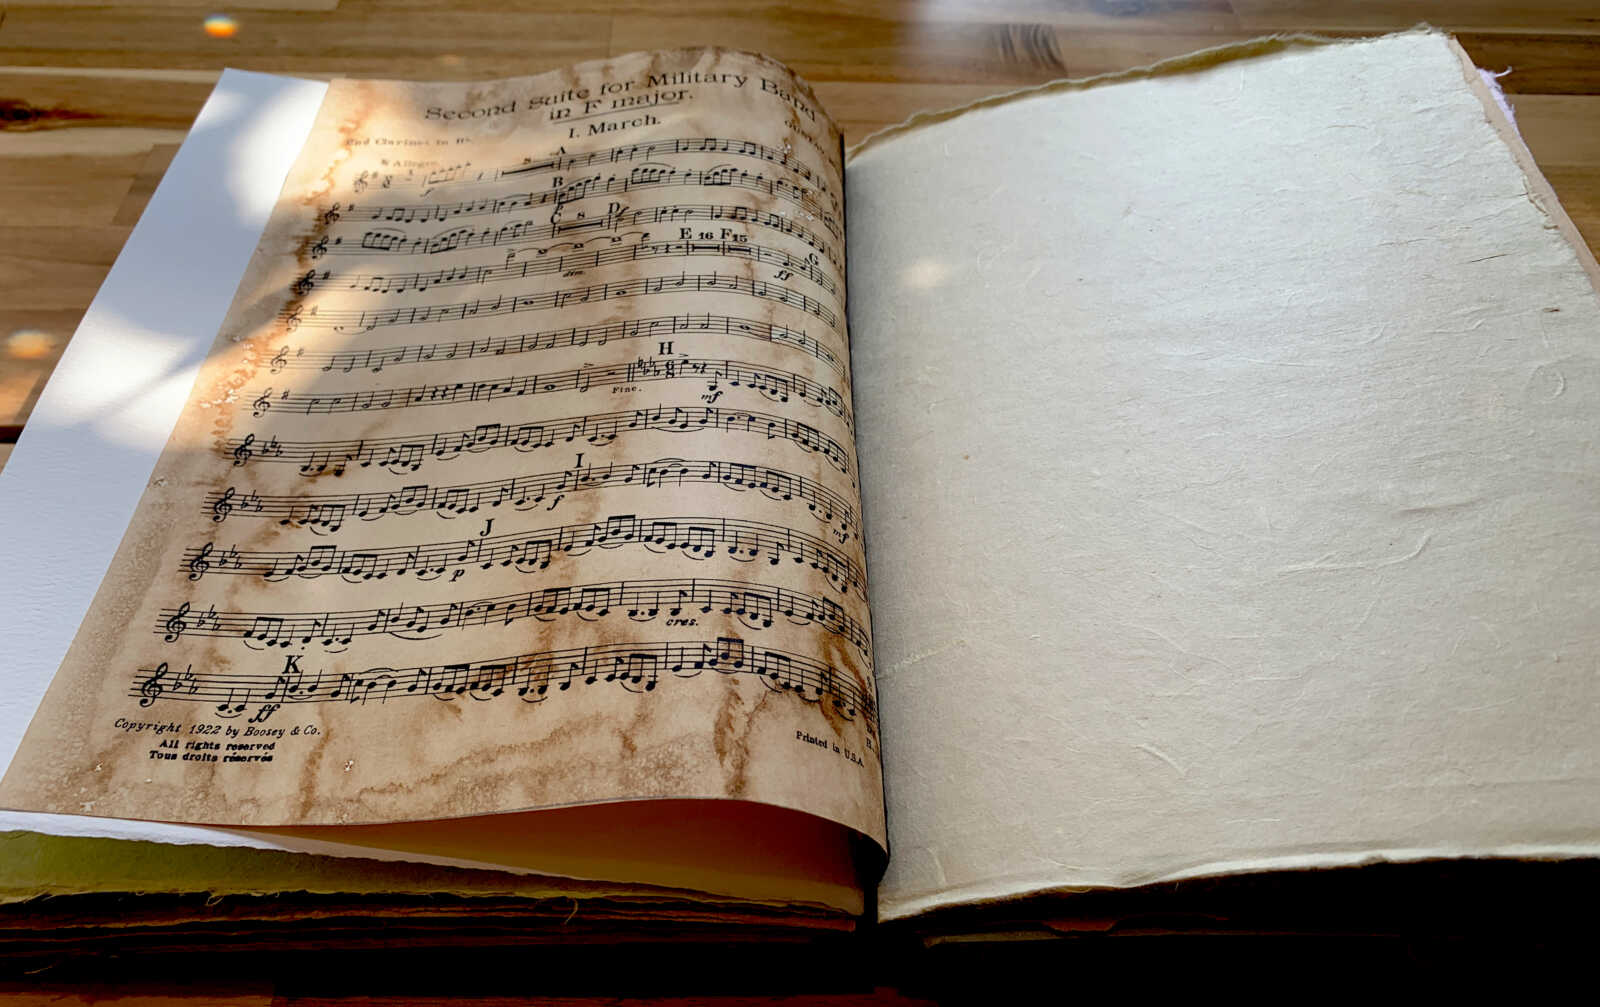 Second Suite for Military Band
in F major.
I. March.
2nd Clarinet in B♭.
Allegro.
8 A
B
C 8 D
E 16 F 15
G
dim.
ff
H
Fine.
mf
I
f
mf
J
p
cres.
K
ff
Copyright 1922 by Boosey & Co.
All rights reserved
Tous droits réservés
Printed in U.S.A.
H.